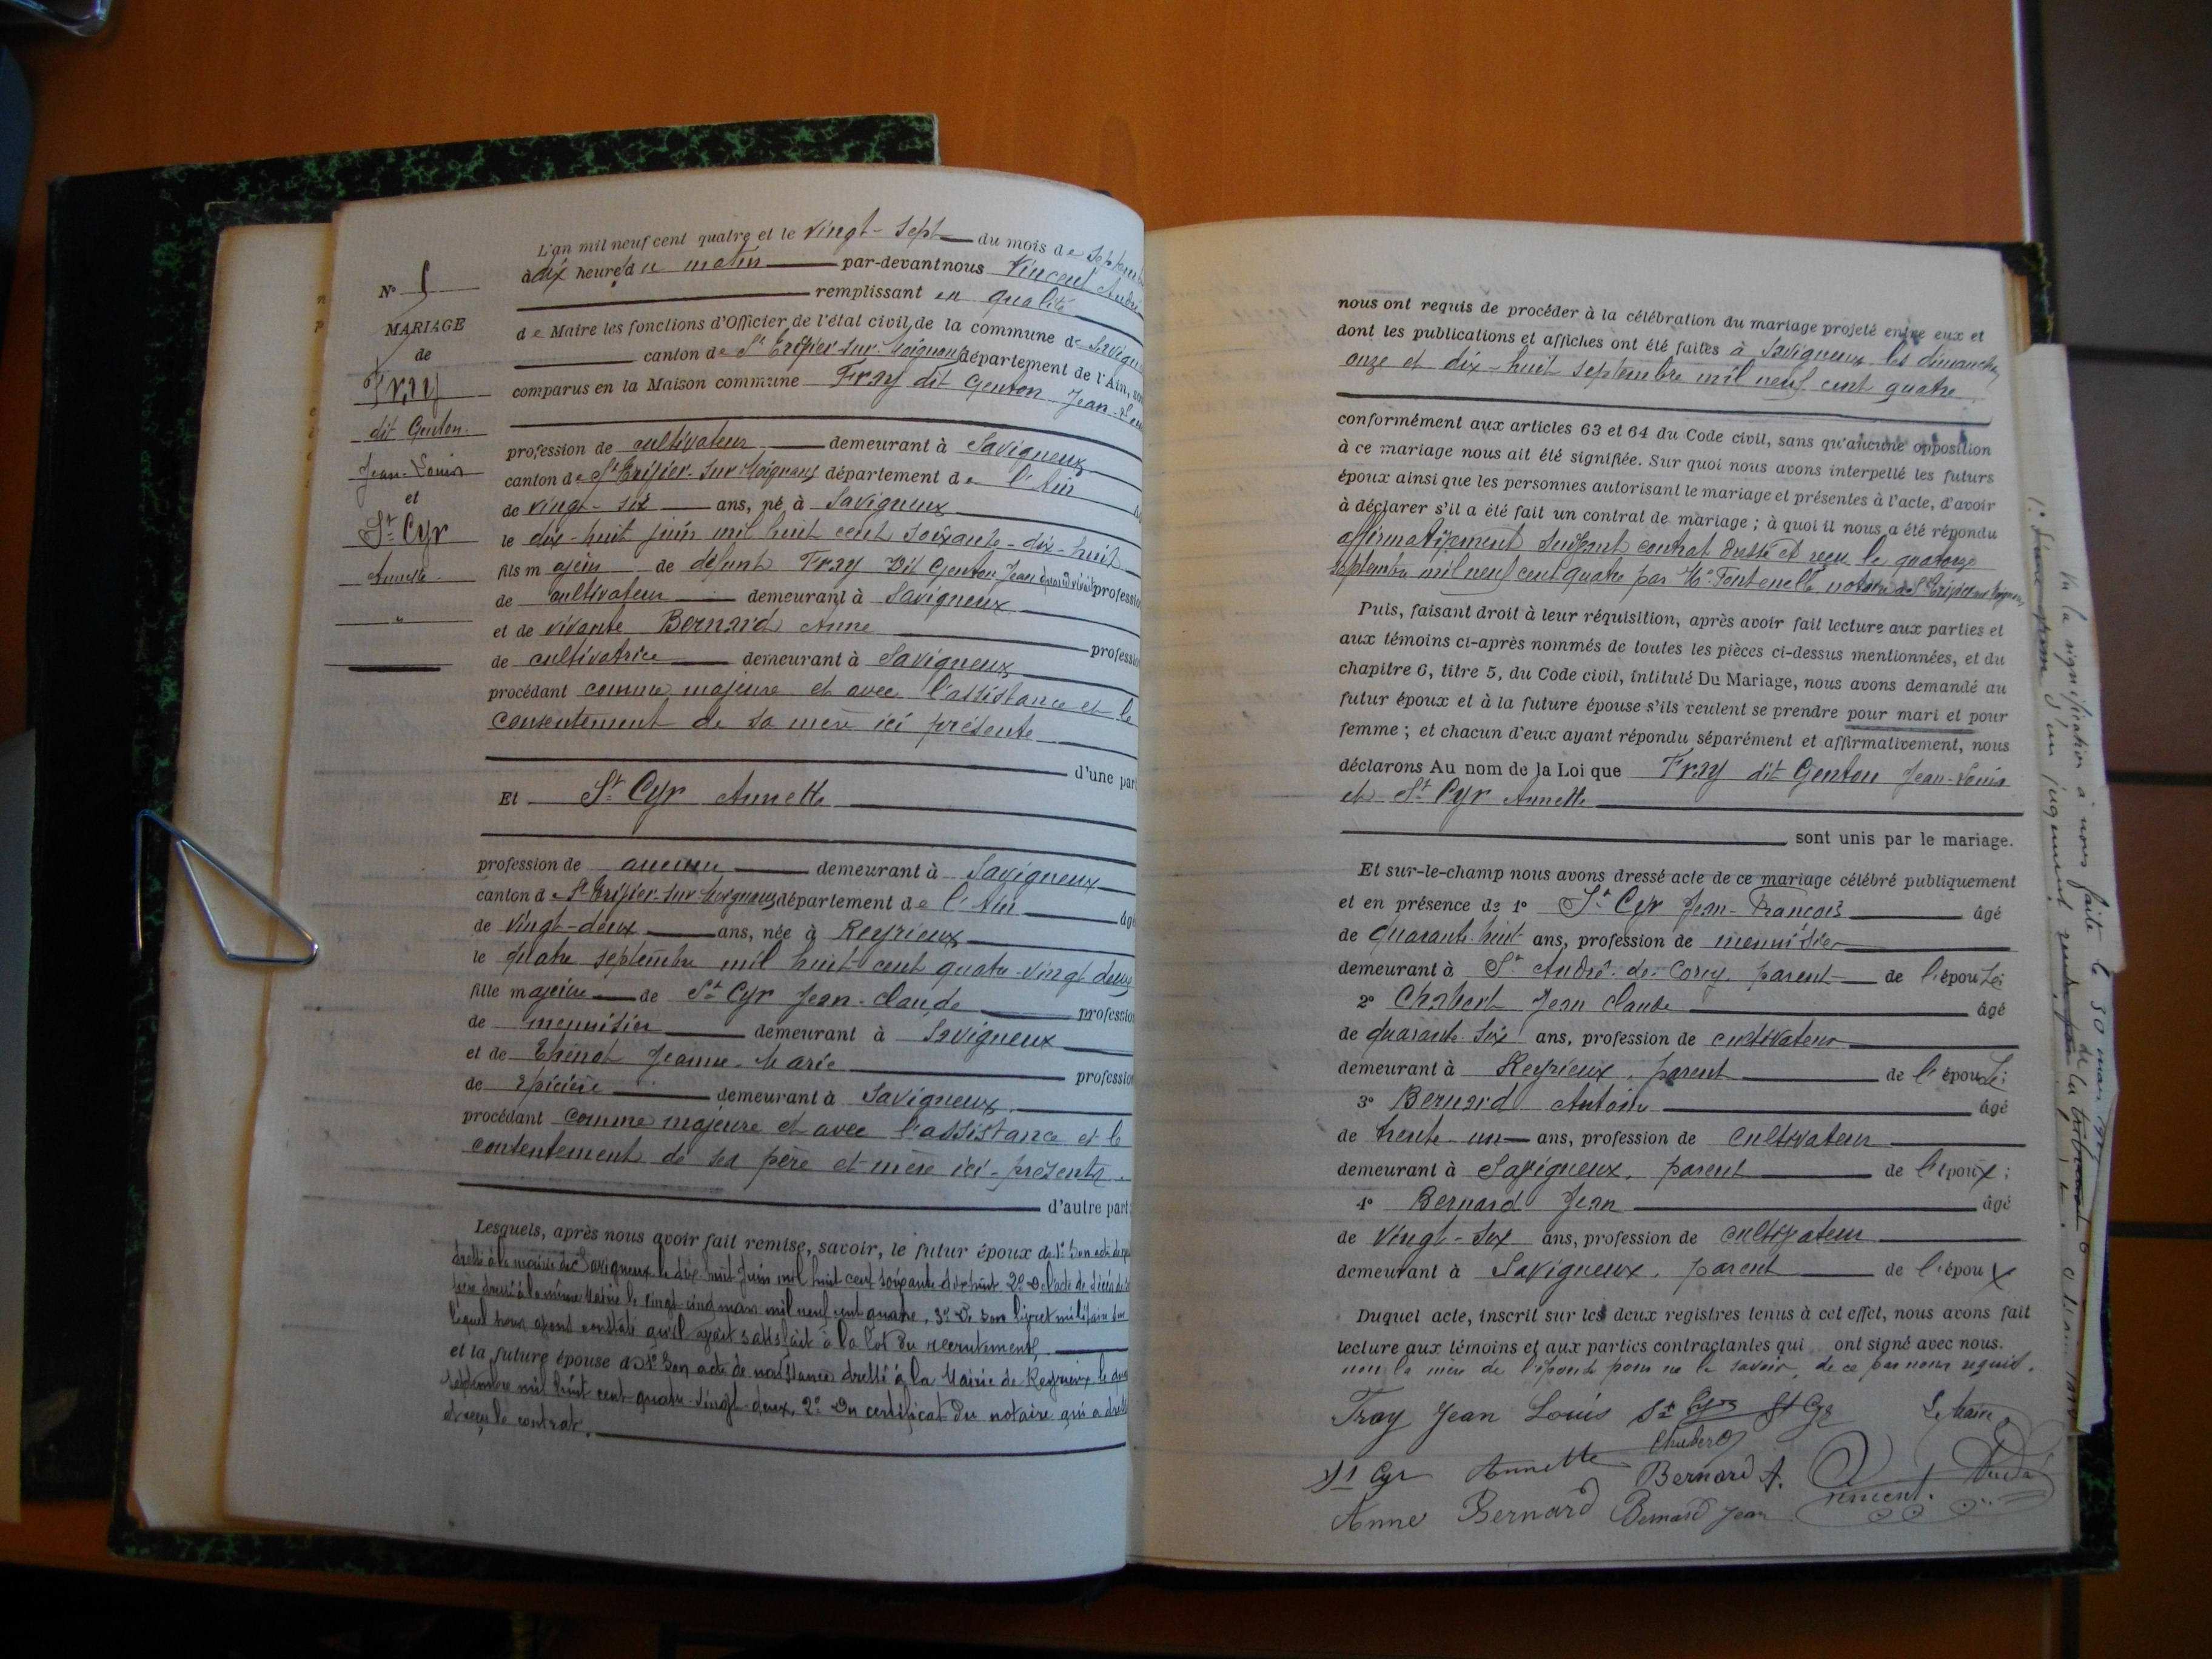 N° 5
MARIAGE
de
Fray
dit Genton
Jean-Louis
et
St Cyr
Annette
L'an mil neuf cent quatre et le vingt-sept du mois de Septembre
à dix heures du matin par-devant nous Vincent André
remplissant en qualité
de Maire les fonctions d'Officier de l'état civil de la commune de Savigneux
canton de St Trivier-sur-Moignans département de l'Ain,
comparus en la Maison commune Fray dit Genton Jean-Louis
profession de cultivateur demeurant à Savigneux
canton de St Trivier-sur-Moignans département de l'Ain
de vingt-six ans, né à Savigneux
le dix-huit juin mil huit cent soixante-dix-huit
fils majeur de défunt Fray dit Genton Jean quand vivait profession
de cultivateur demeurant à Savigneux
et de vivante Bernard Anne
profession
de cultivatrice demeurant à Savigneux
procédant comme majeur et avec l'assistance et le
consentement de sa mère ici présente
d'une part
Et St Cyr Annette
profession de aucune demeurant à Savigneux
canton de St Trivier-sur-Moignans département de l'Ain âgé
de vingt-deux ans, née à Reyrieux
le quatre septembre mil huit cent quatre-vingt deux
fille majeure de St Cyr Jean-Claude profession
de menuisier demeurant à Savigneux
et de Thénat Jeanne-Marie profession
de épicière demeurant à Savigneux
procédant comme majeure et avec l'assistance et le
consentement de ses père et mère ici-présents
d'autre part.
Lesquels, après nous avoir fait remise, savoir, le futur époux de 1° Son acte de
dressé à la mairie de Savigneux le dix-huit Juin mil huit cent soixante dix-huit 2° De l'acte de décès de
père dressé à la même Mairie le vingt-cinq mars mil neuf cent quatre, 3° De son livret militaire sur
lequel nous avons constaté qu'il avait satisfait à la loi du recrutement,
et la future épouse de 1° Son acte de naissance dressé à la Mairie de Reyrieux le
septembre mil huit cent quatre-vingt-deux, 2° Du certificat du notaire qui a dressé
et reçu le contrat.
nous ont requis de procéder à la célébration du mariage projeté entre eux et
dont les publications et affiches ont été faites à Savigneux les dimanches
onze et dix-huit septembre mil neuf cent quatre
conformément aux articles 63 et 64 du Code civil, sans qu'aucune opposition
à ce mariage nous ait été signifiée. Sur quoi nous avons interpellé les futurs
époux ainsi que les personnes autorisant le mariage et présentes à l'acte, d'avoir
à déclarer s'il a été fait un contrat de mariage ; à quoi il nous a été répondu
affirmativement suivant contrat dressé et reçu le quatorze
septembre mil neuf cent quatre par Me Fontenelle notaire à St Trivier sur Moignans
Puis, faisant droit à leur réquisition, après avoir fait lecture aux parties et
aux témoins ci-après nommés de toutes les pièces ci-dessus mentionnées, et du
chapitre 6, titre 5, du Code civil, intitulé Du Mariage, nous avons demandé au
futur époux et à la future épouse s'ils veulent se prendre pour mari et pour
femme ; et chacun d'eux ayant répondu séparément et affirmativement, nous
déclarons Au nom de la Loi que Fray dit Genton Jean-Louis
et St Cyr Annette
sont unis par le mariage.
Et sur-le-champ nous avons dressé acte de ce mariage célébré publiquement
et en présence de 1° St Cyr Jean-François âgé
de quarante-huit ans, profession de menuisier
demeurant à St André-de-Corcy, parent de l'épouse;
2° Chabert Jean Claude âgé
de quarante-six ans, profession de cultivateur
demeurant à Reyrieux, parent de l'épouse;
3° Bernard Antoine âgé
de trente-un ans, profession de cultivateur
demeurant à Savigneux, parent de l'époux;
4° Bernard Jean âgé
de vingt-six ans, profession de cultivateur
demeurant à Savigneux, parent de l'époux
Duquel acte, inscrit sur les deux registres tenus à cet effet, nous avons fait
lecture aux témoins et aux parties contractantes qui ont signé avec nous.
non la mère de l'épouse pour ne le savoir, de ce par nous requis.
Fray Jean Louis St Cyr St Cyr Le Maire
Chabert
St Cyr Annette Bernard A. Vincent André
Anne Bernard Bernard Jean
Vu la signification à nous faite le 30 mars
d'un jugement